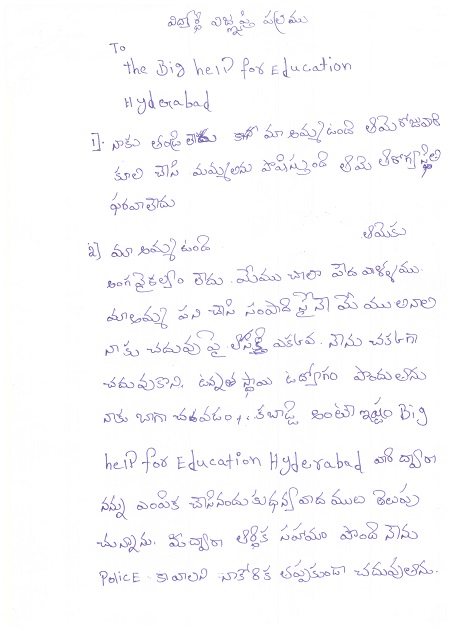 విద్యార్థి విజ్ఞప్తి పత్రము
To
the Big help for Education
Hyderabad
1). నాకు తండ్రి లేడు కానీ మా అమ్మ ఉంది ఆమె రోజువారి
కూలి చేసి మమ్మలను పోషిస్తుంది ఆమె ఆరోగ్య స్థితి
పరవాలేదు
2) మా అమ్మ ఉంది ఆమెకు
అంగవైకల్యం లేదు. మేము చాలా పేద వాళ్ళము.
మా అమ్మ పని చేసి సంపాదిస్తేనే మేము
నాకు చదువు పై ఆసక్తి ఎకఉవ. నేను చకఉగా
చదువుకొని, ఉన్నత స్థాయి ఉద్యోగం పొందుతాను
నాకు బాగా చదవడం,, కబాడ్డి అంటే ఇష్టం Big
help for Education Hyderabad వారి ద్వారా
నన్ను ఎంపిక చేసినందుకు ధన్యవాదములు తెలుపు
చున్నాను. మీ ద్వారా ఆర్థిక సహాయం పొంది నేను
Police కావాలని నా కోరిక తప్పకుండా చదువుతాను.